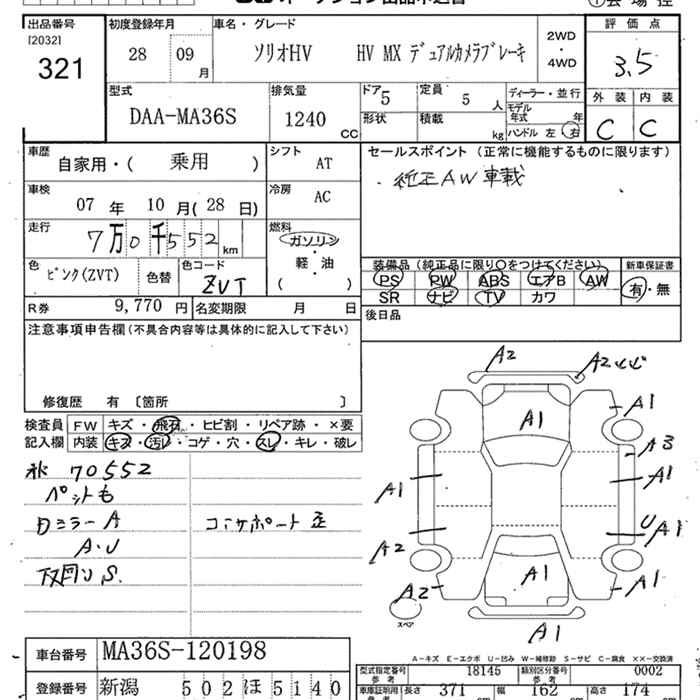 出品番号
[2032]
321
初度登録年月
28 09 月
車名・グレード
ソリオHV HV MX デュアルカメラブレーキ
2WD
・
4WD
評価点
3.5
外装 内装
C C
型式
DAA-MA36S
排気量
1240 CC
ドア 5
定員 5 人
形状
積載 kg
ディーラー・並行
モデル
年式 年
ハンドル 左 右
車歴
自家用・( 乗用 )
シフト
AT
車検
07 年 10 月 (28 日)
冷房
AC
走行
7万0千552 km
燃料
ガソリン
軽・油
( )
色
ピンク(ZVT)
色替
色コード
ZVT
R券 9,770 円
名変期限 月 日
セールスポイント (正常に機能するものに限ります)
・純正AW車載
装備品 (純正品に限り○をつけてください)
新車保証書
PS PW ABS エアB AW
SR ナビ TV カワ
有・無
後日品
注意事項申告欄(不具合内容等は具体的に記入して下さい)
修復歴 有 〔箇所 〕
検査員
記入欄
FW キズ・飛石・ヒビ割・リペア跡・×要
内装 キズ・汚レ・コゲ・穴・スレ・キレ・破レ
70552
ペット毛
ミラーA
A・U
下回りS.
A2
A2
A1
A1
A3
A1
A1
A1
U A1
A2
A1
A2
A1
A1
スペア
A-キズ E-エクボ U-凹み W-補修跡 S-サビ C-腐食 ××-交換済
車台番号
MA36S-120198
登録番号
新潟 502 ほ 5140
型式指定番号
参考
18145
類別区分番号
参考
0002
車庫証明用
長さ 371
幅 162
高さ 174